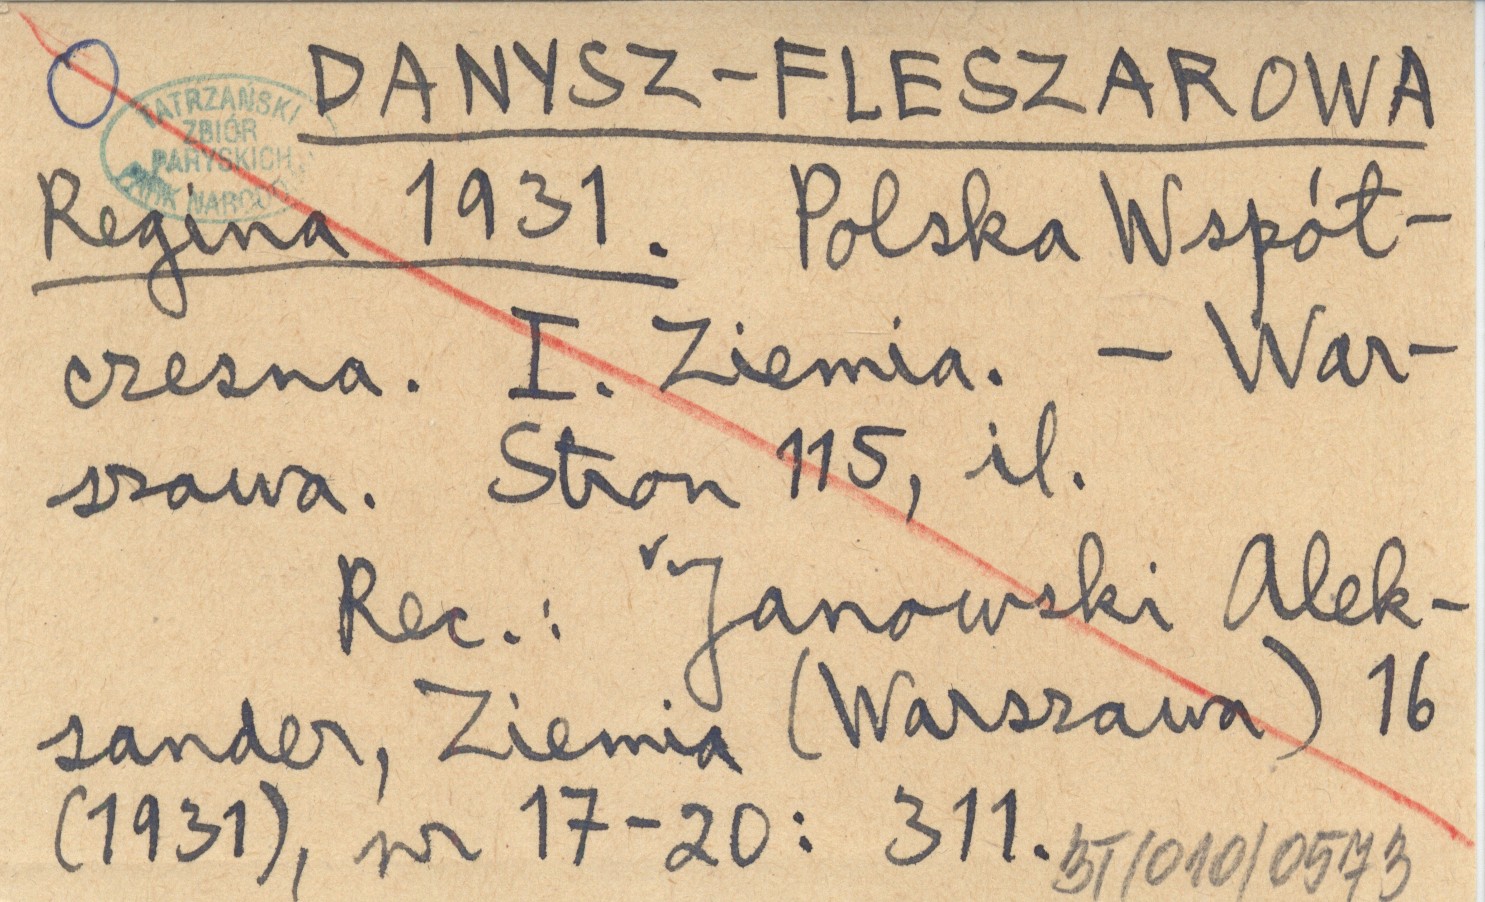 DANYSZ-FLESZAROWA
TATRZAŃSKI
ZBIÓR
PARYSKICH
PARK NARODO
Regina 1931. Polska Współ-
czesna. I. Ziemia. - War-
szawa. Stron 115, il.
Rec.: Janowski Alek-
sander, Ziemia (Warszawa) 16
(1931), nr 17-20: 311.
BT/010/0573